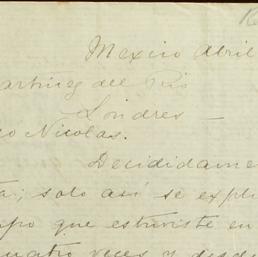 Mexico Abril
artinez del Rio
Londres —
o Nicolas.
Decididame
ta; solo asi se expli
mpo que estuviste en
uatro veces y desde